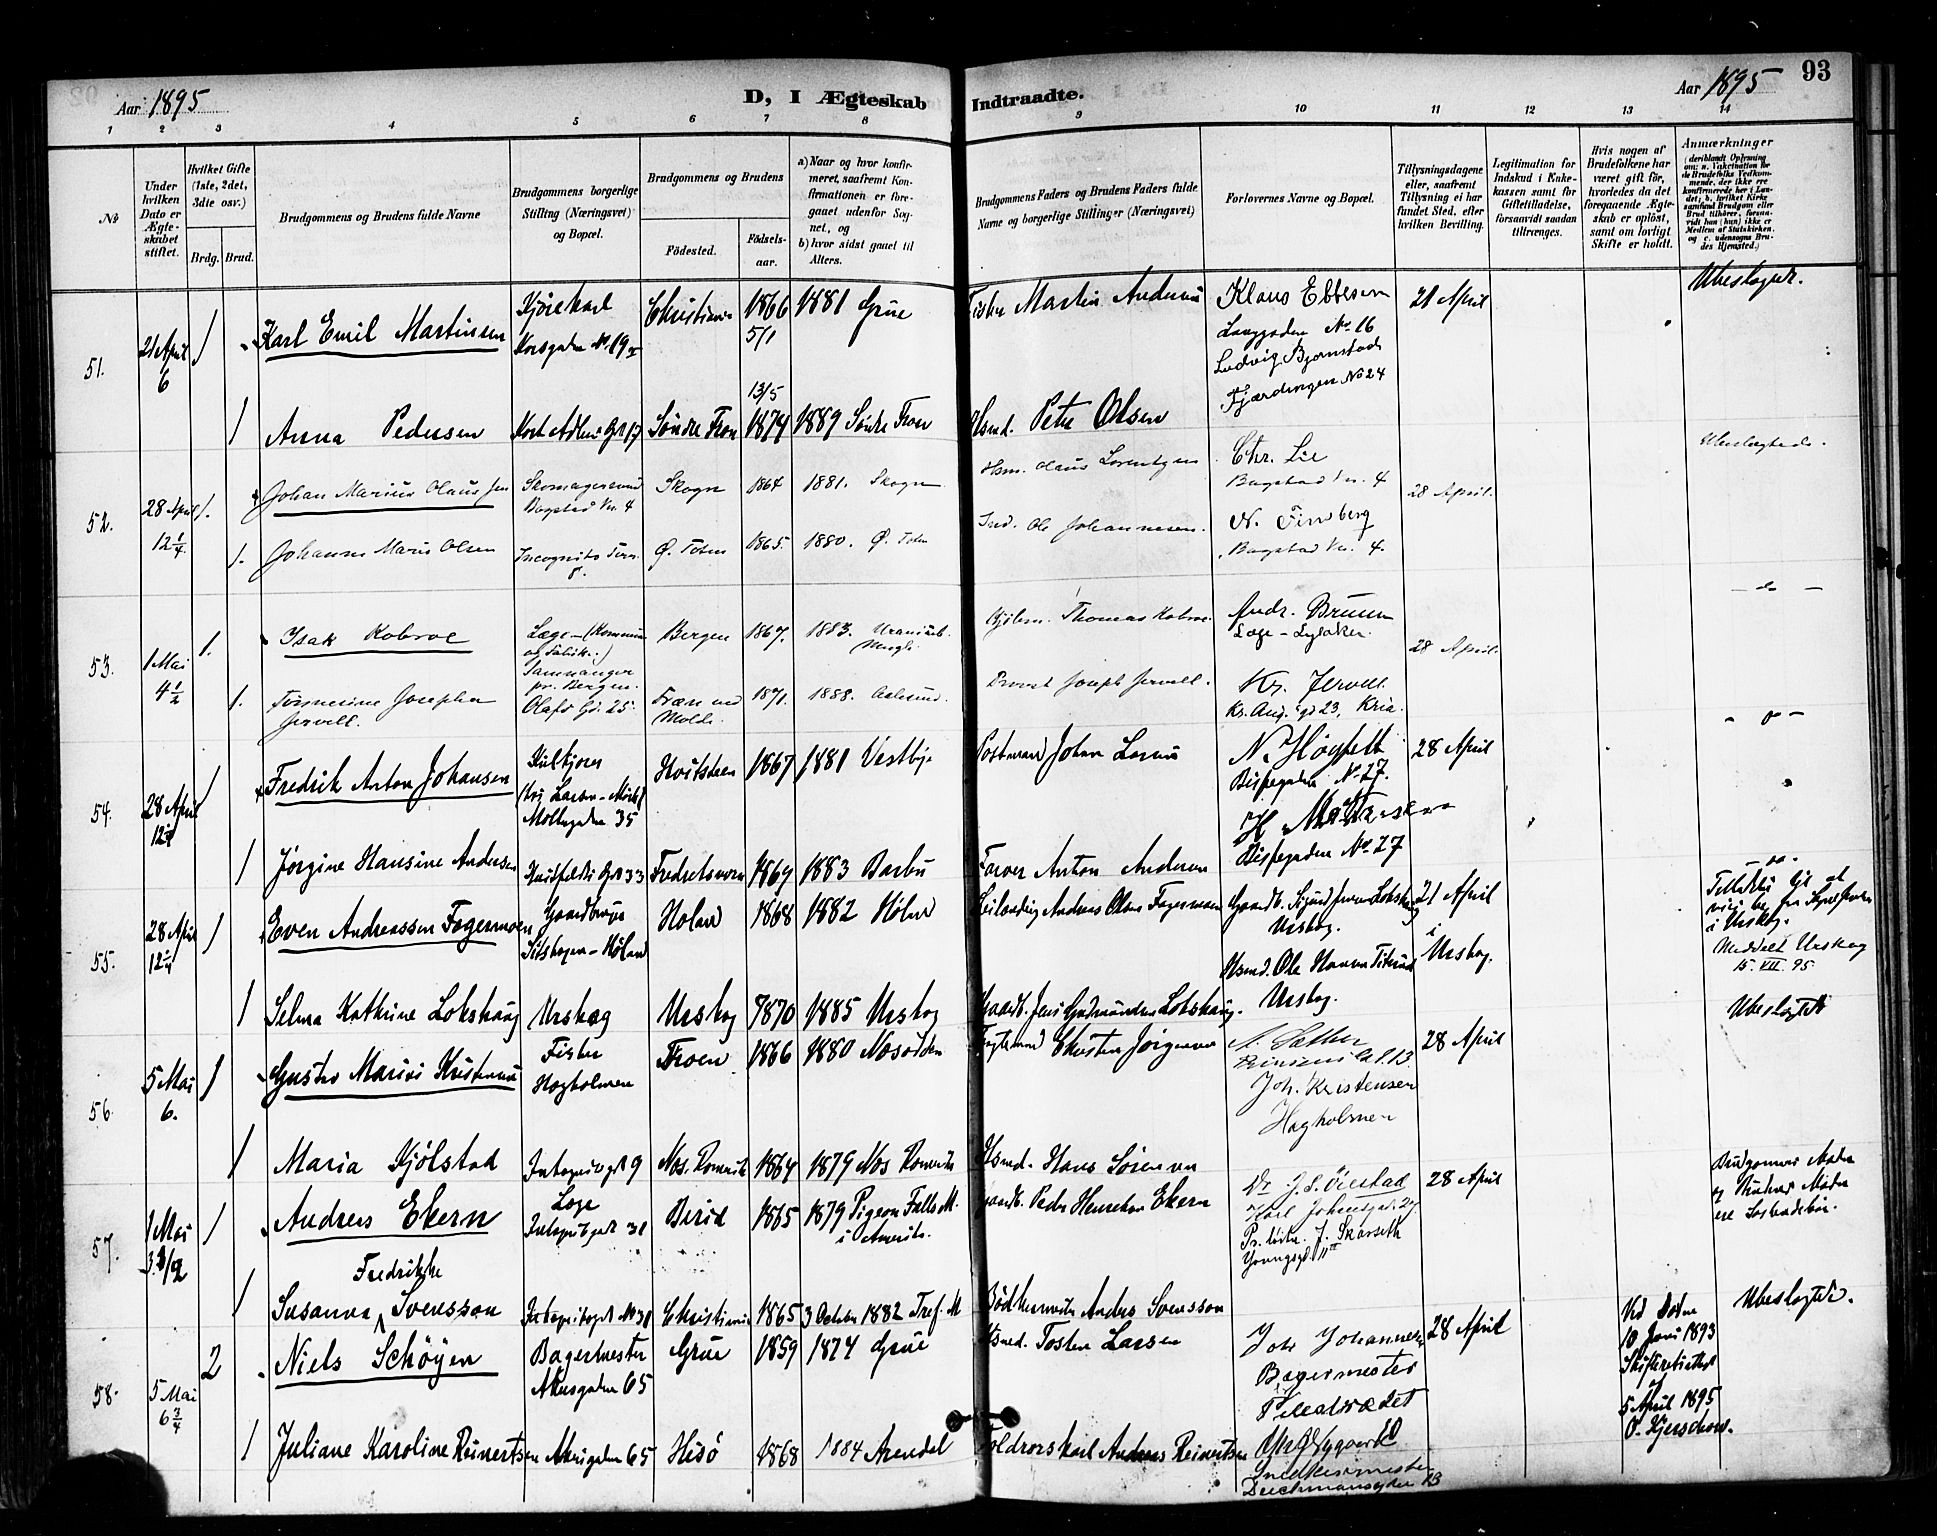 Aar 1895
D, I Ægteskab Indtraadte.
Aar 1895
93
1 2 3 4 5 6 7 8 9 10 11 12 13 14
No
Under hvilken Dato er Ægteskabet stiftet.
Hvilket Gifte (1ste, 2det, 3die osv.)
Brdg. Brud.
Brudgommens og Brudens fulde Navne
Brudgommens borgerlige Stilling (Næringsvei) og Bopæl.
Brudgommens og Brudens
Födested.
Födselsaar.
a) Naar og hvor konfirmeret, saafremt Konfirmationen er foregaaet udenfor Sognet, og
b) hvor sidst gaaet til Alters.
Brudgommens Faders og Brudens Faders fulde Navne og borgerlige Stillinger (Næringsvei)
Forlovernes Navne og Bopæl.
Tillysningsdagene eller, saafremt Tillysning ei har fundet Sted, efter hvilken Bevilling.
Legitimation for Indskud i Enkekassen samt for Giftetilladelse, forsaavidt saadan tiltrænges.
Hvis nogen af Brudefolkene har været gift før, hvorledes da det foregaaende Ægteskab er oplöst, samt om lovligt Skifte er holdt.
Anmærkninger
51.
21 April 6
1
Karl Emil Martinsen
Kjørekarl
Korsgaden No. 19
Christiania
1866
5/1
1881 Grue
Fisker Martin Andersen
Klaus Ebbesen
Langgaden No 16
Ludvig Bjørnstad
Fjerdingen No 24
21 April
Ubeslægtede.
1
Anna Pedersen
Kort Adlers Gd 17
Søndre Fron
13/5
1874
1889 Søndre Fron
Husmd. Peter Olsen
52.
28 April 12 1/4
1.
Johan Marius Olaussen
Skomagersvend
Bogstad Vn. 4
Skogn
1864
1881. Skogn
Hsm. Olaus Lorentzen
Chr. Lie
Bogstad Vn. 4
28 April.
Ubeslægtede.
1.
Johanne Marie Olsen
Incognito Terr. 8.
Ø. Toten
1865.
1880. Ø. Toten
Ind. Ole Johannesen.
N. Finnberg
Bogstad Vn. 4.
53.
1 Mai 4 1/2
1.
Isak Kobroe
Læge - (Kommune og Fabrik.)
Samnanger pr. Bergen.
Bergen
1867.
1883.
Kjøbm. Thomas Kobroe.
Andr. Bruun
Læge - Lysaker.
28 April.
- do -
1.
Josepha Jervell.
Olafs Gd. 25.
Fræne ved Molde
1871.
1888. Aalesund.
Provst Joseph Jervell.
Kr. Jervell.
Kr. Aug. gd 23, Kria.
54.
28 April
1
Fredrik Anton Johansen
Kulkjører
Moltegaden 35
Hvitsteen
1867
1881 Vestby
Postmand Johan Larsen
N. Høgfelt
Bispegaden No 27.
H. Mathisen
Bispegaden No 27
28 April
- o -
1
Jørgine Hansine Andersen
Hvidtfeldts Gd. 33
Fredriksværn
1869
1883 Barbu
Farver Anton Andersen
55.
28 April 12 1/4
1
Even Andreassen Fagermoen
Gaardbruger
Høland
Høland
1868
1882 Høland
Leilænding Andreas Olsen Fagermoen
Urskog.
21 April
i
Urskog.
- do -
i Urskog.
Meddelt Urskog
15. VII. 95.
1
Selma Kathrine Lokshaug
Urskog
Urskog
1870
1885 Urskog
Gaardb. Jens Gudmundsen Lokshaug.
Urskog.
Ubeslægtede
56.
5 Mai 6.
1
Gustav Marius Kristensen
Fisker
Hagholmen
Froen
1866
1880 Næsodden
Christen Jørgensen
A. Sæther
Joh. Kristensen
Hagholmen
28 April
1
Maria Kjølstad
Incognitogd 9
Næs. Romerike
1864
1879 Næs Romerike
Husmd. Hans Sørensen
57.
1 Mai 3 1/2
1
Andreas Ekern
Læge
Incognitogad 31
Birid
1865
1879 Pigeon Falls M.
i Amerika.
Gaardb. Peder Henriksen Ekern
Dr J. S. Øiestad
Karl Johansgd. 27.
J. Skarseth
Youngsgd. 11 III
28 April
Brudgommens Moder
og Brudens Moder
ere Søskendebørn.
1
Susanna Fredrikke Svensson
Incognitogad No 31
Christiania
1865
3 October 1882 Tref. M
Bødkermester Anders Svensson
58.
5 Mai 6 3/4
2
Niels Schøyen
Bagermester
Akersgaden 65
Grue
1859
1874 Grue
Husmd. Tosten Larsen
Joh Johannesen
Bagermester
Pilestrædet
28 April
Ved Døden
10 Juni 1893
Skifteretsattest
af
5 April 1895
O. Kjerschow.
Ubeslægtede.
1
Juliane Karoline Reinertsen
Akersgaden 65
Hisø
1868
1884 Arendal
Toldrorskarl Andreas Reinertsen
Chr Nygaard
Snedkermester
Deichmansgaden 13